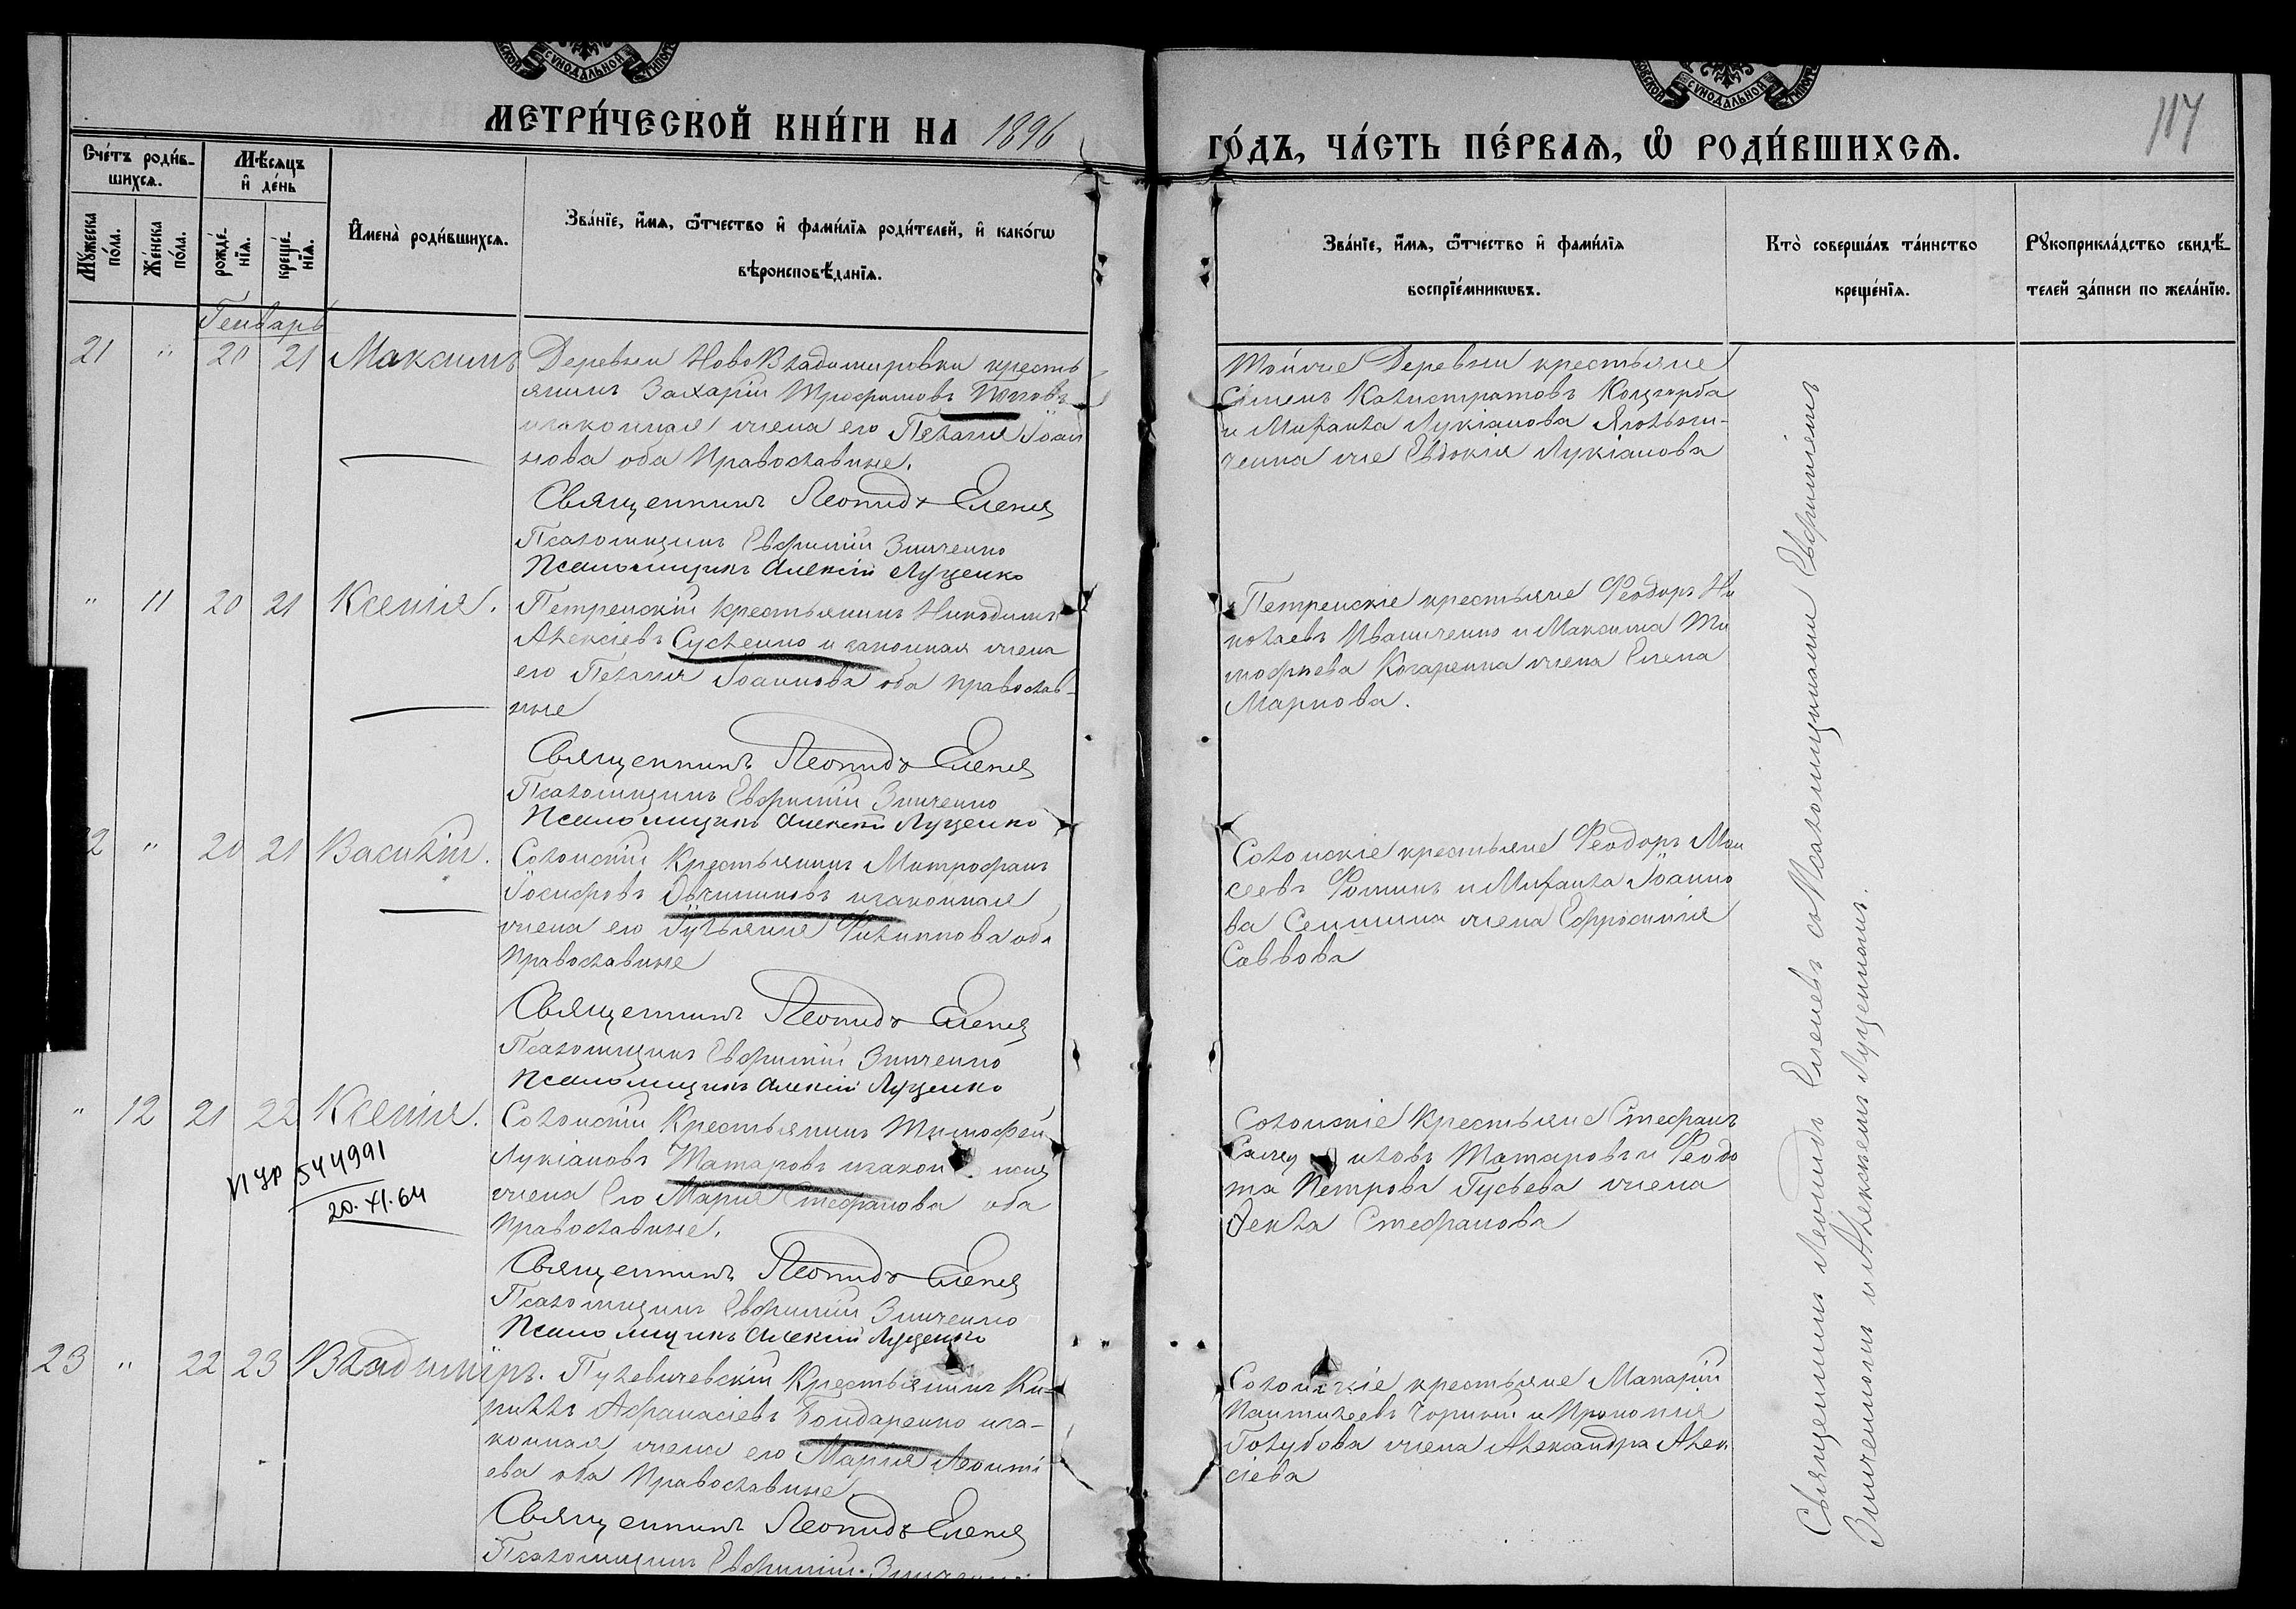 МЕТРИ́ЧЕСКОЙ КНИ́ГИ НА 1896
ГО́ДЪ, ЧА́СТЬ ПЕ́РВАЯ, Ѡ РОДИ́ВШИХСЯ.
117
Сче́тъ роди́в-
шихся.
Мѣсяцъ
и де́нь
Мꙋжеска
по́ла.
Же́нска
по́ла.
рожде́-
нїя.
креще́-
нїя.
Имена̀ роди́вшихся.
Зва́нїе, и́мя, ѻ҆́тчество и фами́лїя роди́телей, и како́гѡ
вѣроисповѣ́данїя.
Зва́нїе, и́мя, ѻ҆́тчество и фами́лїя
воспрїе́мникѡвъ.
Кто̀ соверша́лъ та́инство
креще́нїя.
Рꙋкоприкла́дство свидѣ́-
телей за́писи по жела́нїю.
Генварь
21 " 20 21 Максимъ
Деревни НовоВладимировки кресть
янинъ Захарій Трофимовъ Поповъ
изаконная жена его Пелагія Іоан
нова оба Православные.
Священникъ Леонидъ Еленев
Псаломщикъ Евфимій Зинченко
Псаломщикъ Алексій Луценко
Тойже Деревни крестьяне
Симеонъ Калистратовъ
и Михаила Лукіанова
жена Евдокія Лукіанова
" 11 20 21 Ксенія.
Петренскій крестьянинъ Никодимъ
Алексіевъ Сусленко и законная жена
его Пелагія Іоаннова оба православ-
ные
Священникъ Леонидъ Еленев
Псаломщикъ Евфимій Зинченко
Псаломщикъ Алексій Луценко
Петренскіе крестьяне Феодоръ Ни
колаевъ Иваниченко и Максима Ти
мофиева Кочаренка жена Елена
Маркова.
22 " 20 21 Василій.
Солонскій Крестьянинъ Митрофанъ
Іосифовъ Овчинниковъ изаконная
жена его Іульянія Филиппова оба
Православные
Священникъ Леонидъ Еленев
Псаломщикъ Евфимій Зинченко
Псаломщикъ Алексій Луценко
Солонскіе крестьяне Феодоръ Мои
сеевъ Фоминъ и Михаила Іоанно
ва Сеншина жена Ефросинія
Саввова
" 12 21 22 Ксенія.
544991
20.XI.64
Солонскій Крестьянинъ Тимофей
Лукіановъ Татаровъ изаконная
жена Его Марія Стефанова оба
Православные.
Священникъ Леонидъ Еленев
Псаломщикъ Евфимій Зинченко
Псаломщикъ Алексій Луценко
Солонскіе Крестьяне Стефанъ
Татаровъ и Феодо
та Петрова Гусьева жена
Фекла Стефанова
23 " 22 23 Владиміръ.
Пулевичевскій Крестьянинъ Ки-
риллъ Афанасіевъ Бондаренко иза-
конная жена его Марія Леонті
ева оба Православные
Священникъ Леонидъ Еленев
Псаломщикъ Евфимій Зинченко
Солонскіе крестьяне Макарій
Пантилеевъ Чорный и Прокопія
Голубова жена Александра Алек
сіева
Священникъ Леонидъ Еленевъ съ Псаломщиками Евфиміемъ
Зинченкомъ и Алексіемъ Луценкомъ.